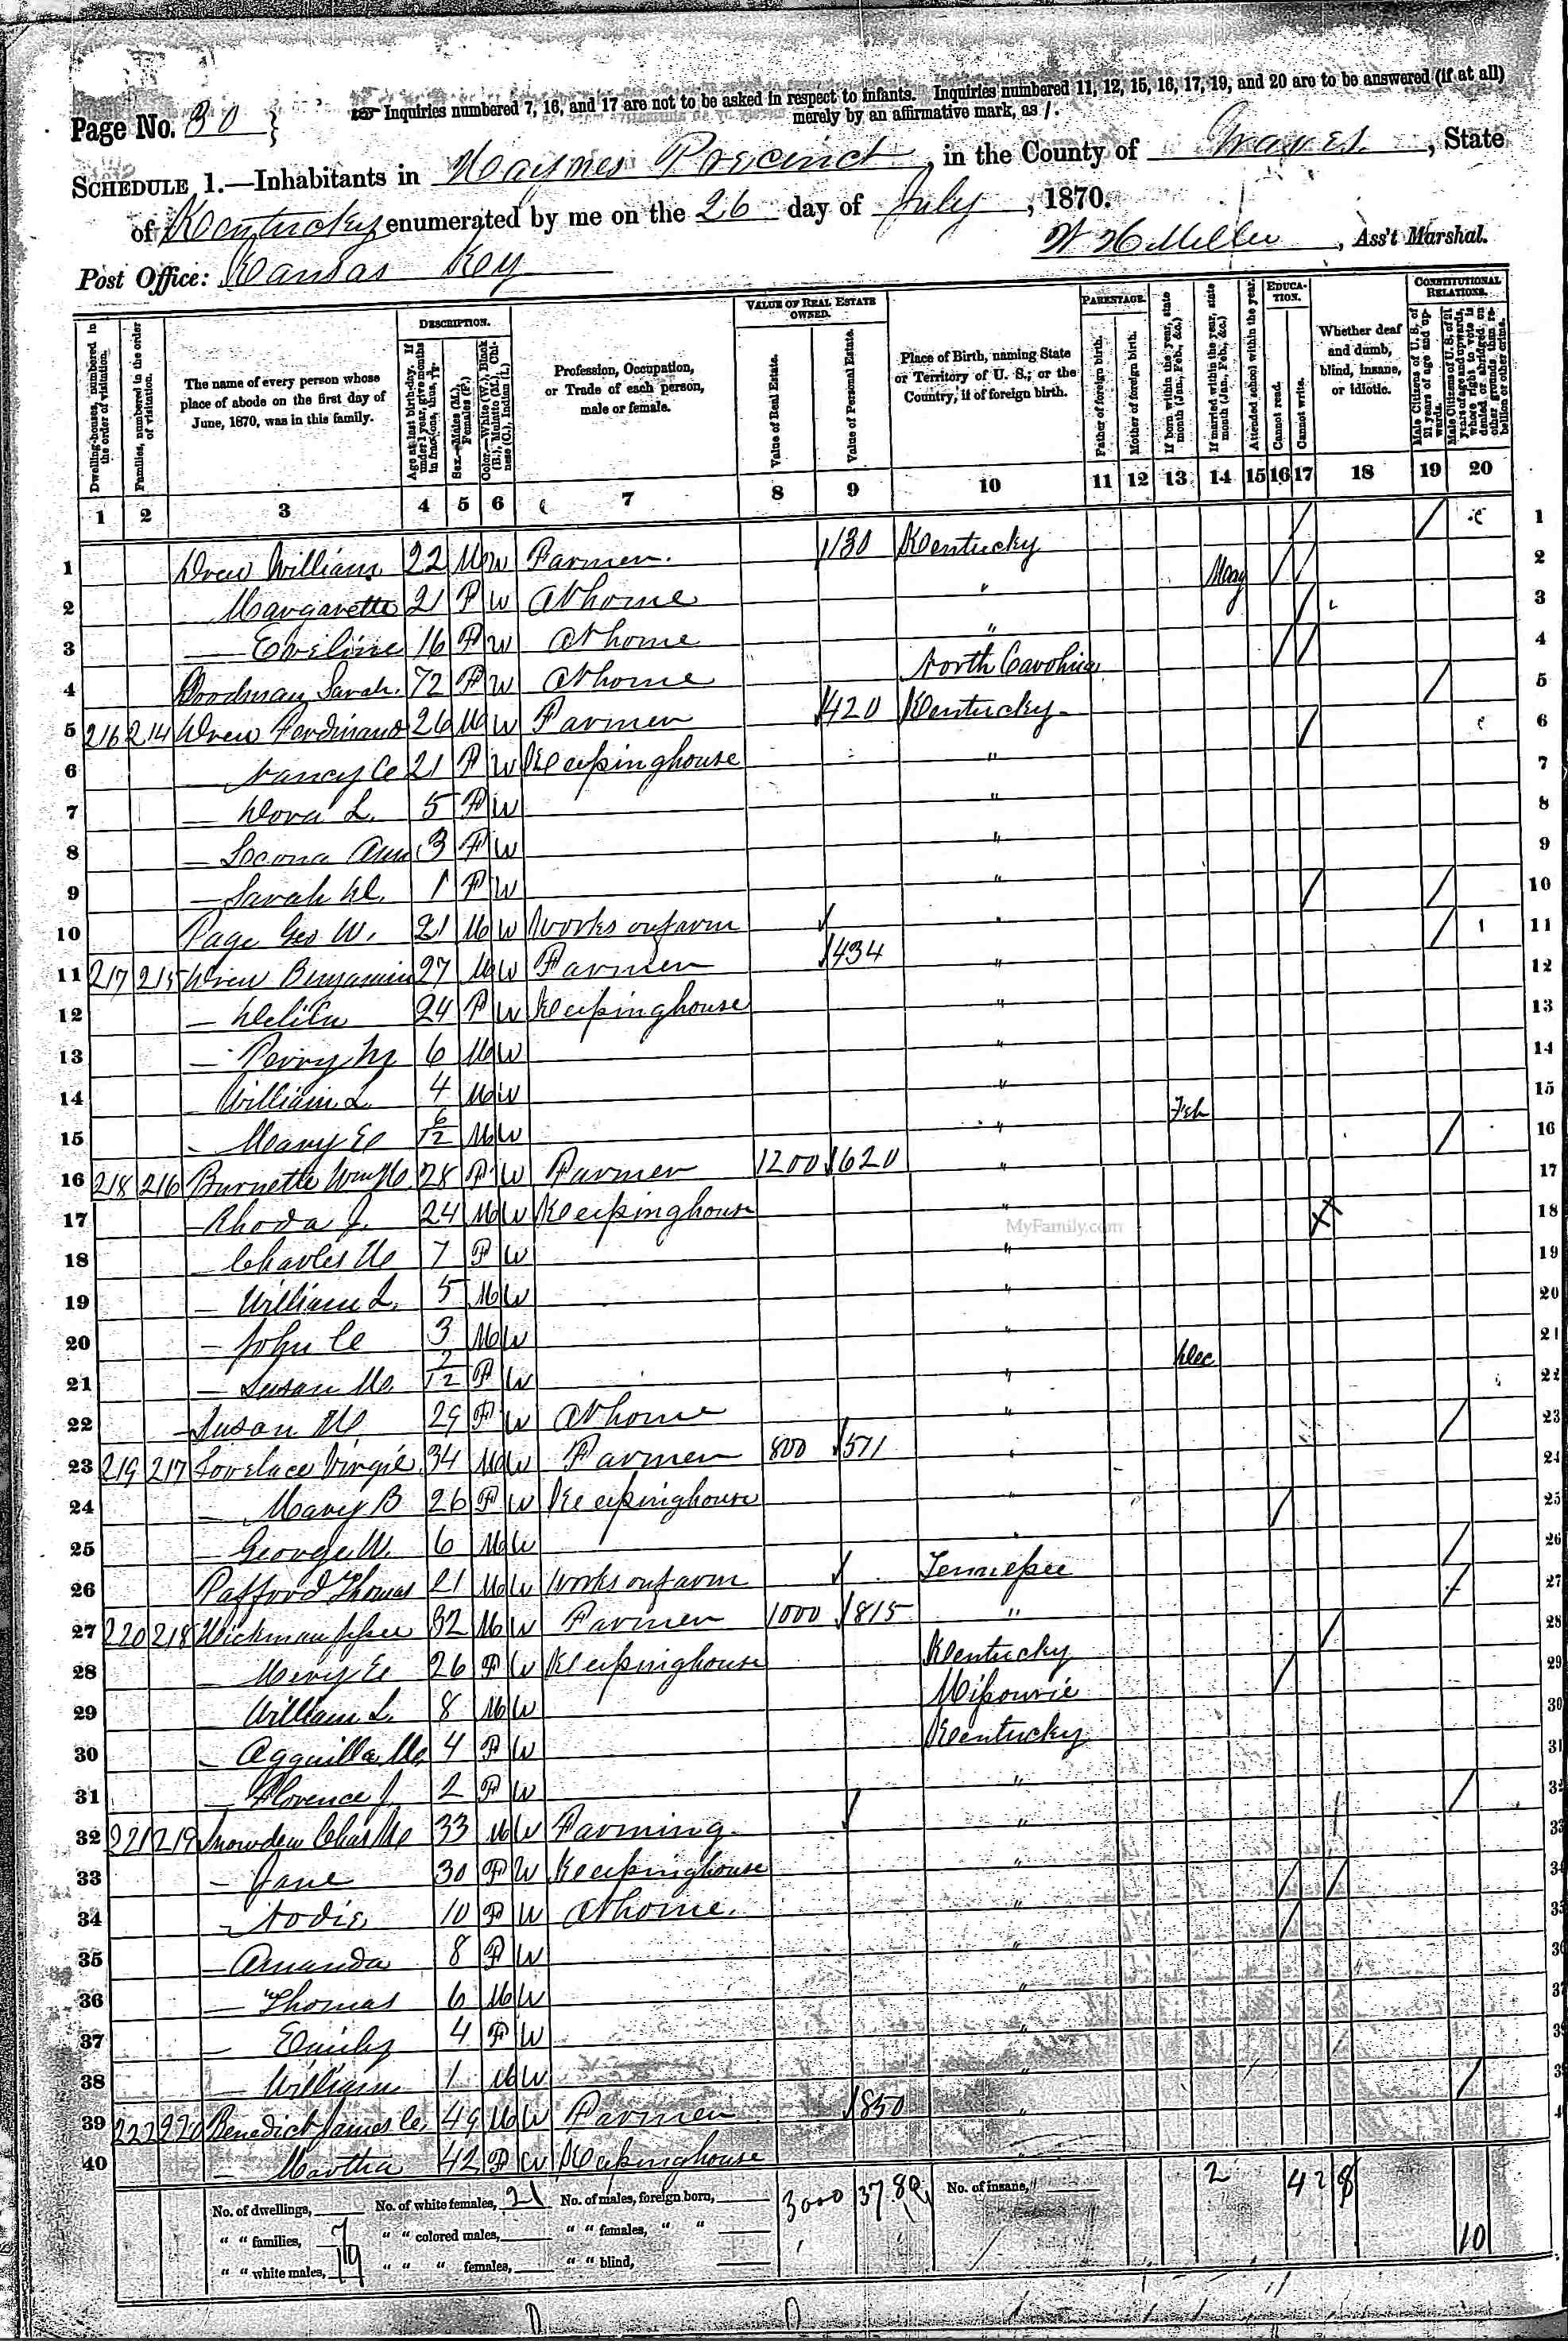 Page No. 30 } Inquiries numbered 7, 16, and 17 are not to be asked in respect to infants. Inquiries numbered 11, 12, 15, 16, 17, 19, and 20 are to be answered (if at all)
merely by an affirmative mark, as /.
SCHEDULE 1.—Inhabitants in Haynes Precinct, in the County of Graves, State
of Kentucky enumerated by me on the 26 day of July, 1870.
Post Office: Kansas Key W H Miller, Ass't Marshal.
Dwelling-houses, numbered in the order of visitation.
Families, numbered in the order of visitation.
The name of every person whose place of abode on the first day of June, 1870, was in this family.
DESCRIPTION.
Age at last birth-day. If under 1 year, give months in fractions, thus,
Sex.—Males (M.), Females (F.)
Color.—White (W.), Black (B.), Mulatto (M.), Chinese (C.), Indian (I.)
Profession, Occupation, or Trade of each person, male or female.
VALUE OF REAL ESTATE OWNED.
Value of Real Estate.
Value of Personal Estate.
Place of Birth, naming State or Territory of U. S.; or the Country, if of foreign birth.
PARENTAGE.
Father of foreign birth.
Mother of foreign birth.
If born within the year, state month (Jan., Feb., &c.)
If married within the year, state month (Jan., Feb., &c.)
Attended school within the year.
EDUCATION.
Cannot read.
Cannot write.
Whether deaf and dumb, blind, insane, or idiotic.
CONSTITUTIONAL RELATIONS.
Male Citizens of U. S. of 21 years of age and upwards.
Male Citizens of U. S. of 21 years of age and upwards, whose right to vote is denied or abridged on other grounds than rebellion or other crime.
1 2 3 4 5 6 7 8 9 10 11 12 13 14 15 16 17 18 19 20
1 Drew William 22 M W Farmer. 130 Kentucky / / 1
2 — Margarette 21 F W At home " May / / 2
3 — Eveline 16 F W At home " / 3
4 Sarah 72 F W At home North Carolina / / 4
5 216 214 Drew Ferdinand 26 M W Farmer 420 Kentucky / 5
6 — Nancy C 21 F W Keepinghouse " / 6
7 — Dora L. 5 F W " 7
8 — Ann 3 F W " 8
9 — Sarah D. 1 F W " 9
10 Page Geo W. 21 M W Works on farm " / / 10
11 217 215 Drew Benjamin 27 M W Farmer 434 " / 11
12 — 24 F W Keepinghouse " 12
13 — Perry M 6 M W " 13
14 — William L 4 M W " 14
15 — Mary E 6/12 M W " Feb 15
16 218 216 Burnette Wm H 28 F W Farmer 1200 620 " / 16
17 — Rhoda J. 24 M W Keepinghouse " 17
18 — Charles H 7 F W " 18
19 — William L. 5 M W " 19
20 — John C 3 M W " 20
21 — Susan M. 7/12 F W " Dec 21
22 — Susan M 29 F W At home " 22
23 219 217 Lovelace Virgil 34 M W Farmer 800 571 " / 23
24 — Mary B 26 F W Keepinghouse " 24
25 — George W. 6 M W " / 25
26 Pafford Thomas 21 M W Works on farm Tennessee / 26
27 220 218 Hickman Jesse 32 M W Farmer 1000 815 " / 27
28 — Mary E 26 F W Keepinghouse Kentucky / 28
29 — William L. 8 M W Missourie / 29
30 — Agguilla M. 4 F W Kentucky 30
31 — Florence J. 2 F W " 31
32 221 219 Snowden Chas H 33 M W Farming " / 32
33 — Jane 30 F W Keepinghouse " 33
34 — Nodie 10 F W At home. " / / 34
35 — Amanda 8 F W " / 35
36 — Thomas 6 M W " 36
37 — Emily 4 F W " 37
38 — William 1 M W " 38
39 222 220 Benedict James C. 49 M W Farmer 850 " / 39
40 — Martha 42 F W Keepinghouse " 40
MyFamily.com
No. of dwellings, No. of white females, 21 No. of males, foreign born, 3000 No. of insane, 2 4 2 8
" " families, 7 " " colored males, " " females, " " 10
" " white males, 19 " " " females, " " blind,